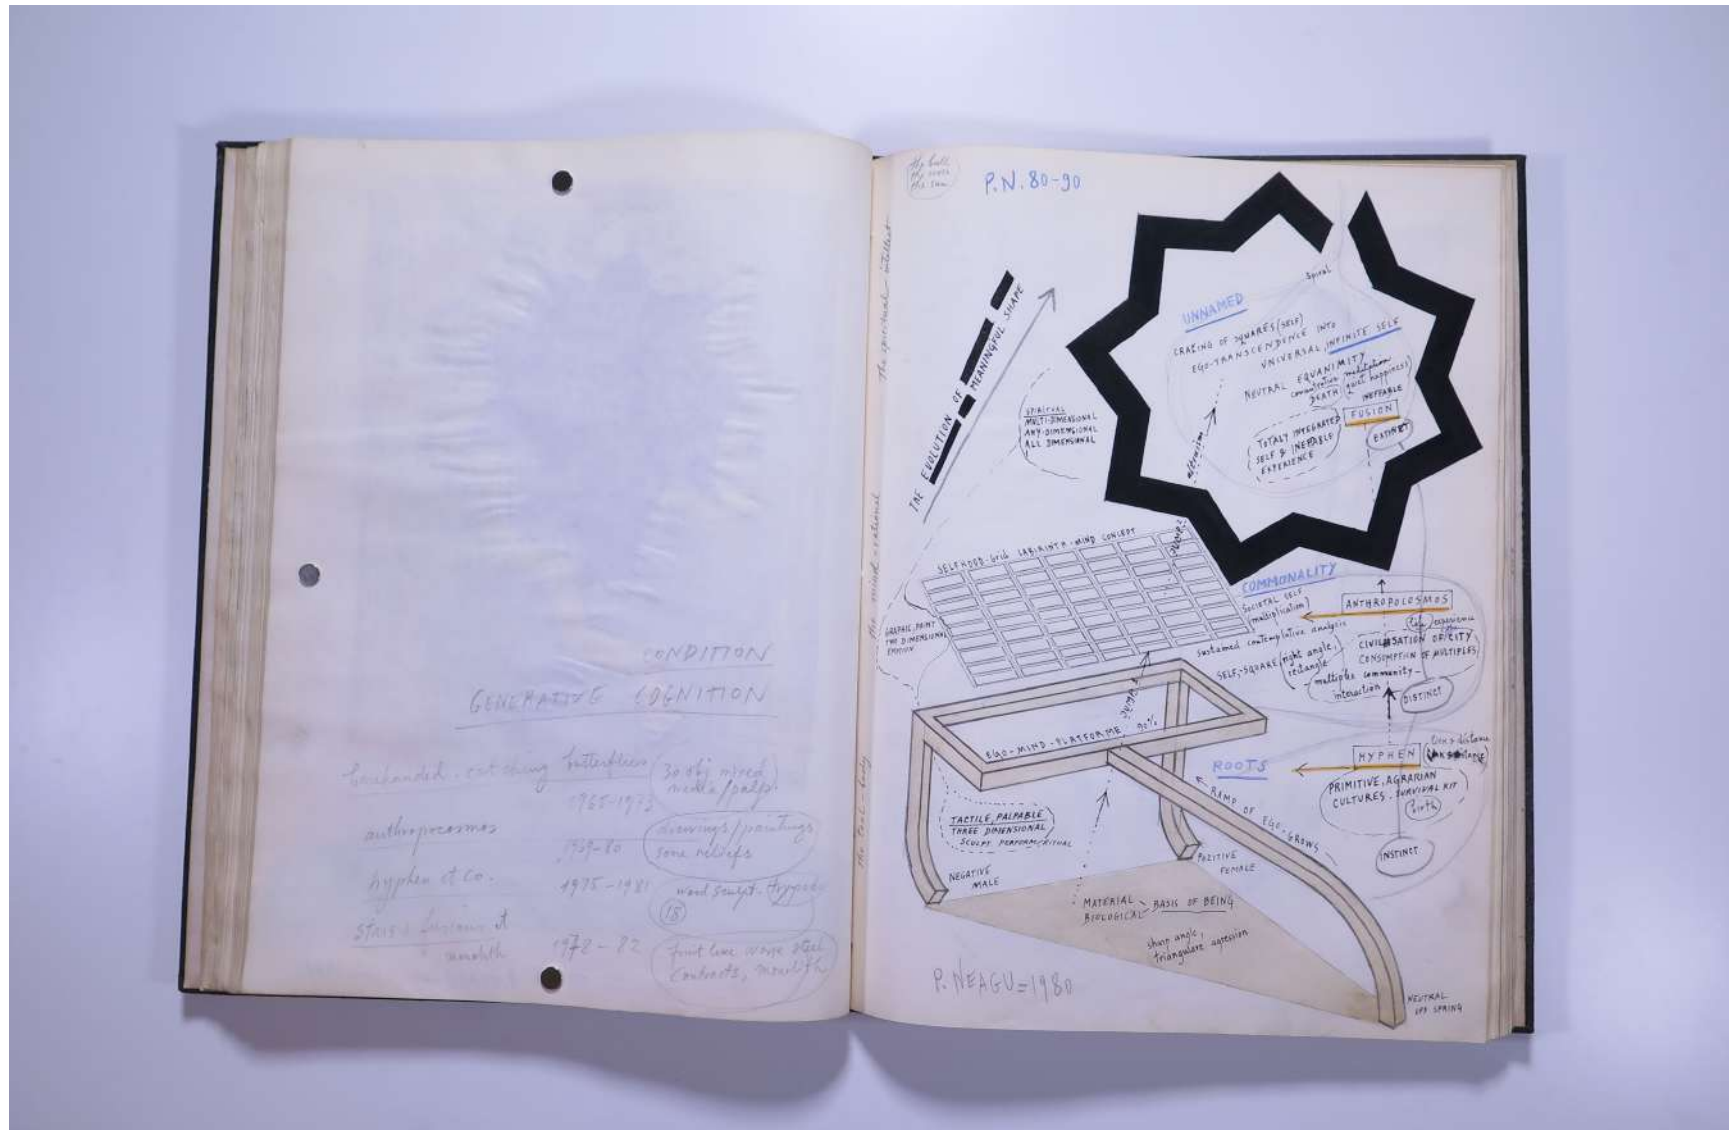 CONDITION
GENERATIVE COGNITION
barehanded. catching butterflies
30 obj mixed
media/palp.
1965-1973
anthropocosmos
1969-80
drawings/paintings
some reliefs
hyphen et Co.
1975-1981
wood sculpt.
15
fusions et
monolith
1978-82
monolith
the sun
P.N. 80-90
The spiritual - intellect
the mind - rational
the tool - body
THE EVOLUTION OF MEANINGFUL SHAPE
SPIRITUAL
MULTI-DIMENSIONAL
ANY-DIMENSIONAL
ALL DIMENSIONAL
spiral
UNNAMED
CRAZING OF SQUARES (SELF)
EGO-TRANSCENDENCE INTO
UNIVERSAL, INFINITE SELF
NEUTRAL EQUANIMITY
concentration meditation
DEATH quiet happiness)
INEFFABLE
FUSION
EXTINCT
TOTALY INTEGRATED
SELF & INEFABLE
EXPERIENCE
altruism
SELFHOOD-GRID LABIRINTH-MIND CONCEPT
JUMP.2
GRAPHIC, PAINT
TWO DIMENSIONAL
EMOTION
COMMONALITY
SOCIETAL SELF
multiplication)
ANTHROPOCOSMOS
sustained contemplative analysis
experience
CIVILISATION OF CITY
CONSUMPTION OF MULTIPLES
SELF-SQUARE (right angle,
rectangle
multiples community-
interaction
DISTINCT
JUMP.1
EGO-MIND-PLATFORME 90%
ROOTS
HYPHEN
distance
PRIMITIVE, AGRARIAN
CULTURES. SURVIVAL KIT
birth
INSTINCT
RAMP OF EGO-GROWS
TACTILE, PALPABLE
THREE DIMENSIONAL
SCULPT PERFORM/RITUAL
NEGATIVE
MALE
POZITIVE
FEMALE
MATERIAL
BIOLOGICAL BASIS OF BEING
sharp angle,
triangulare agression
P. NEAGU=1980
NEUTRAL
OFF SPRING